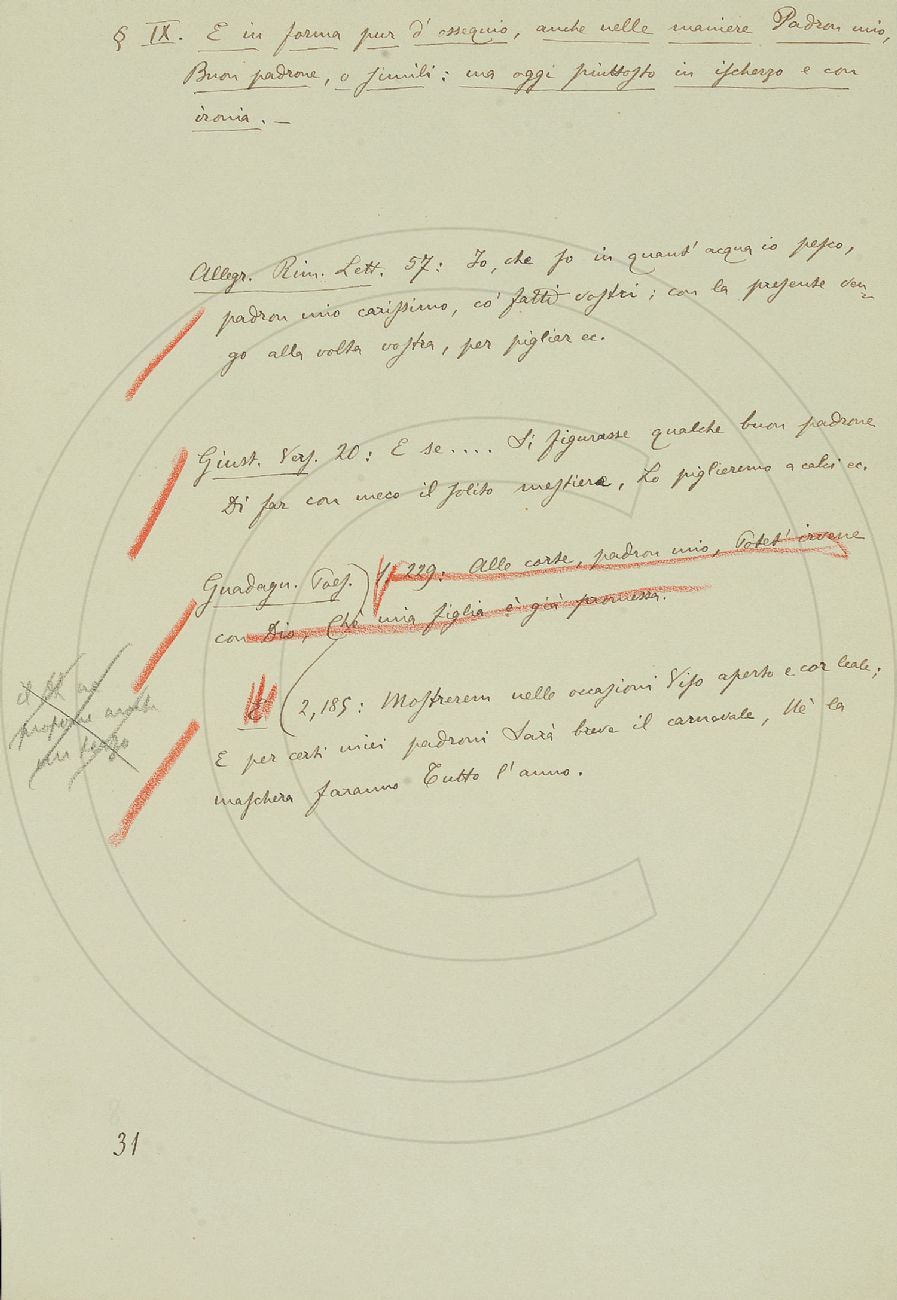 § IX. E in forma pur d'ossequio, anche nelle maniere Padron mio,
Buon padrone, o simili: ma oggi piuttosto in ischerzo e con
ironia. –
Allegr. Rim. Lett. 57: Io, che so in quant'acqua io pesco,
padron mio carissimo, co' fatti vostri; con la presente ven=
go alla volta vostra, per pigliar ec.
Giust. Vers. 20: E se.... Si figurasse qualche buon padrone
Di far con meco il solito mestiere, Lo piglieremo a calci ec.
Guadagn. Poes. 1, 229: Alle corte, padron mio, Potet' irvene
con Dio, Chè mia figlia è già promessa.
E 2,185: Mostrerem nelle occasioni Viso aperto e cor leale;
E per certi miei padroni Sarà breve il carnovale, Nè la
maschera faranno Tutto l'anno.
il
propone anche
un terzo
31